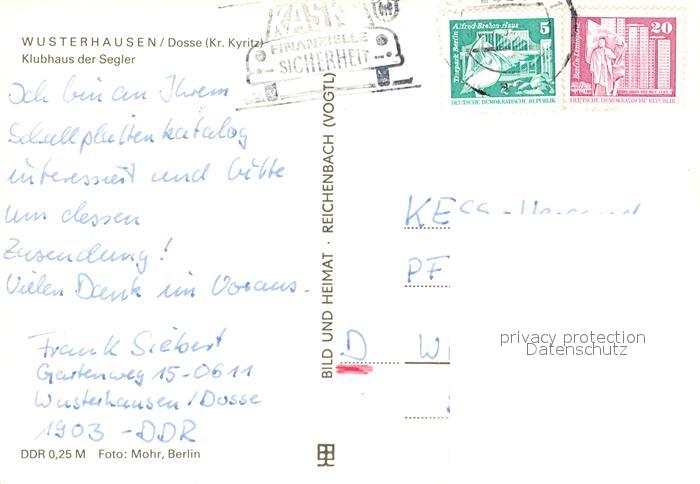 WUSTERHAUSEN / Dosse (Kr. Kyritz)
Klubhaus der Segler
Ich bin an Ihrem
Schallplattenkatalog
interessiert und bitte
um dessen
Zusendung!
Vielen Dank im Voraus.
Frank Siebert
Gartenweg 15-0611
Wusterhausen/Dosse
1903 - DDR
DDR 0,25 M Foto: Mohr, Berlin
BILD UND HEIMAT · REICHENBACH (VOGTL)
KASKO
FINANZIELLE
SICHERHEIT
Tierpark Berlin Alfred-Brehm-Haus 5
DEUTSCHE DEMOKRATISCHE REPUBLIK
Berlin-Leninplatz 20
DEUTSCHE DEMOKRATISCHE REPUBLIK
PF
D W
privacy protection
Datenschutz